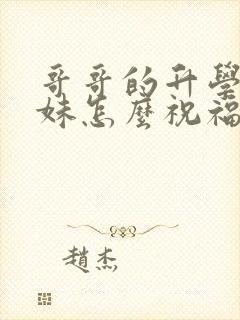 哥哥的升學
妹怎麼祝福
趙杰